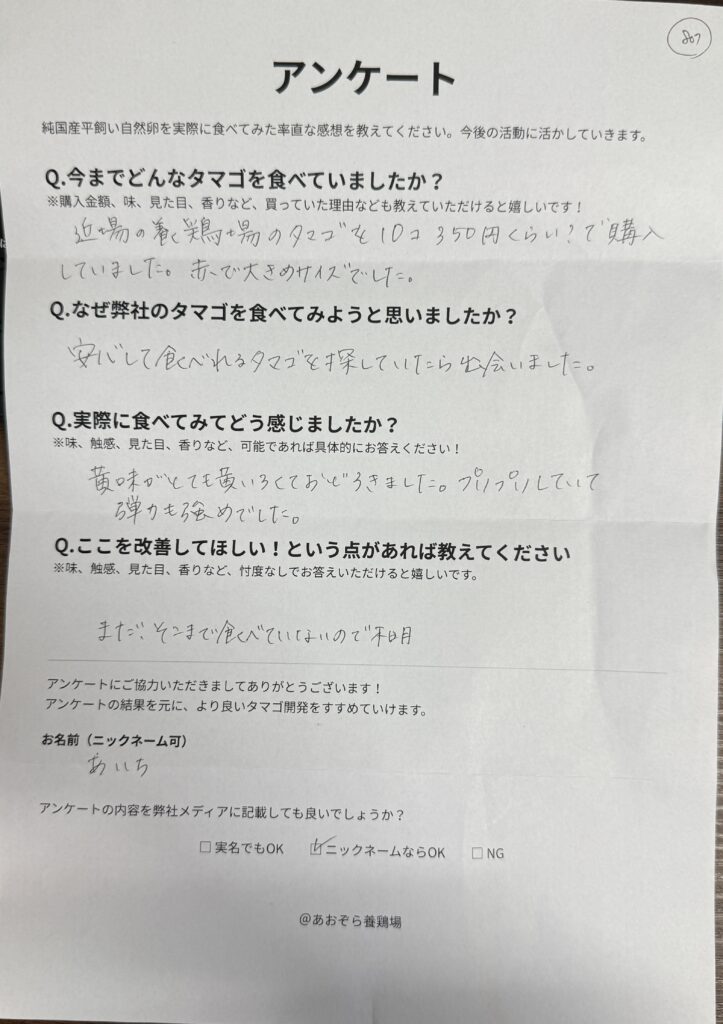 807
アンケート
純国産平飼い自然卵を実際に食べてみた率直な感想を教えてください。今後の活動に活かしていきます。
Q.今までどんなタマゴを食べていましたか？
※購入金額、味、見た目、香りなど、買っていた理由なども教えていただけると嬉しいです！
近場の養鶏場のタマゴを10コ350円くらい？で購入
していました。赤で大きめサイズでした。
Q.なぜ弊社のタマゴを食べてみようと思いましたか？
安心して食べれるタマゴを探していたら出会いました。
Q.実際に食べてみてどう感じましたか？
※味、触感、見た目、香りなど、可能であれば具体的にお答えください！
黄味がとても黄いろくておどろきました。プリプリしていて
弾力も強めでした。
Q.ここを改善してほしい！という点があれば教えてください
※味、触感、見た目、香りなど、忖度なしでお答えいただけると嬉しいです。
まだ、そこまで食べていないので不明
アンケートにご協力いただきましてありがとうございます！
アンケートの結果を元に、より良いタマゴ開発をすすめていけます。
お名前（ニックネーム可）
あいち
アンケートの内容を弊社メディアに記載しても良いでしょうか？
□ 実名でもOK ☑ ニックネームならOK □ NG
@あおぞら養鶏場